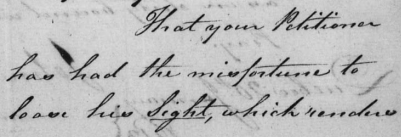 That your Petitioner
has had the misfortune to
loose his Sight, which renders